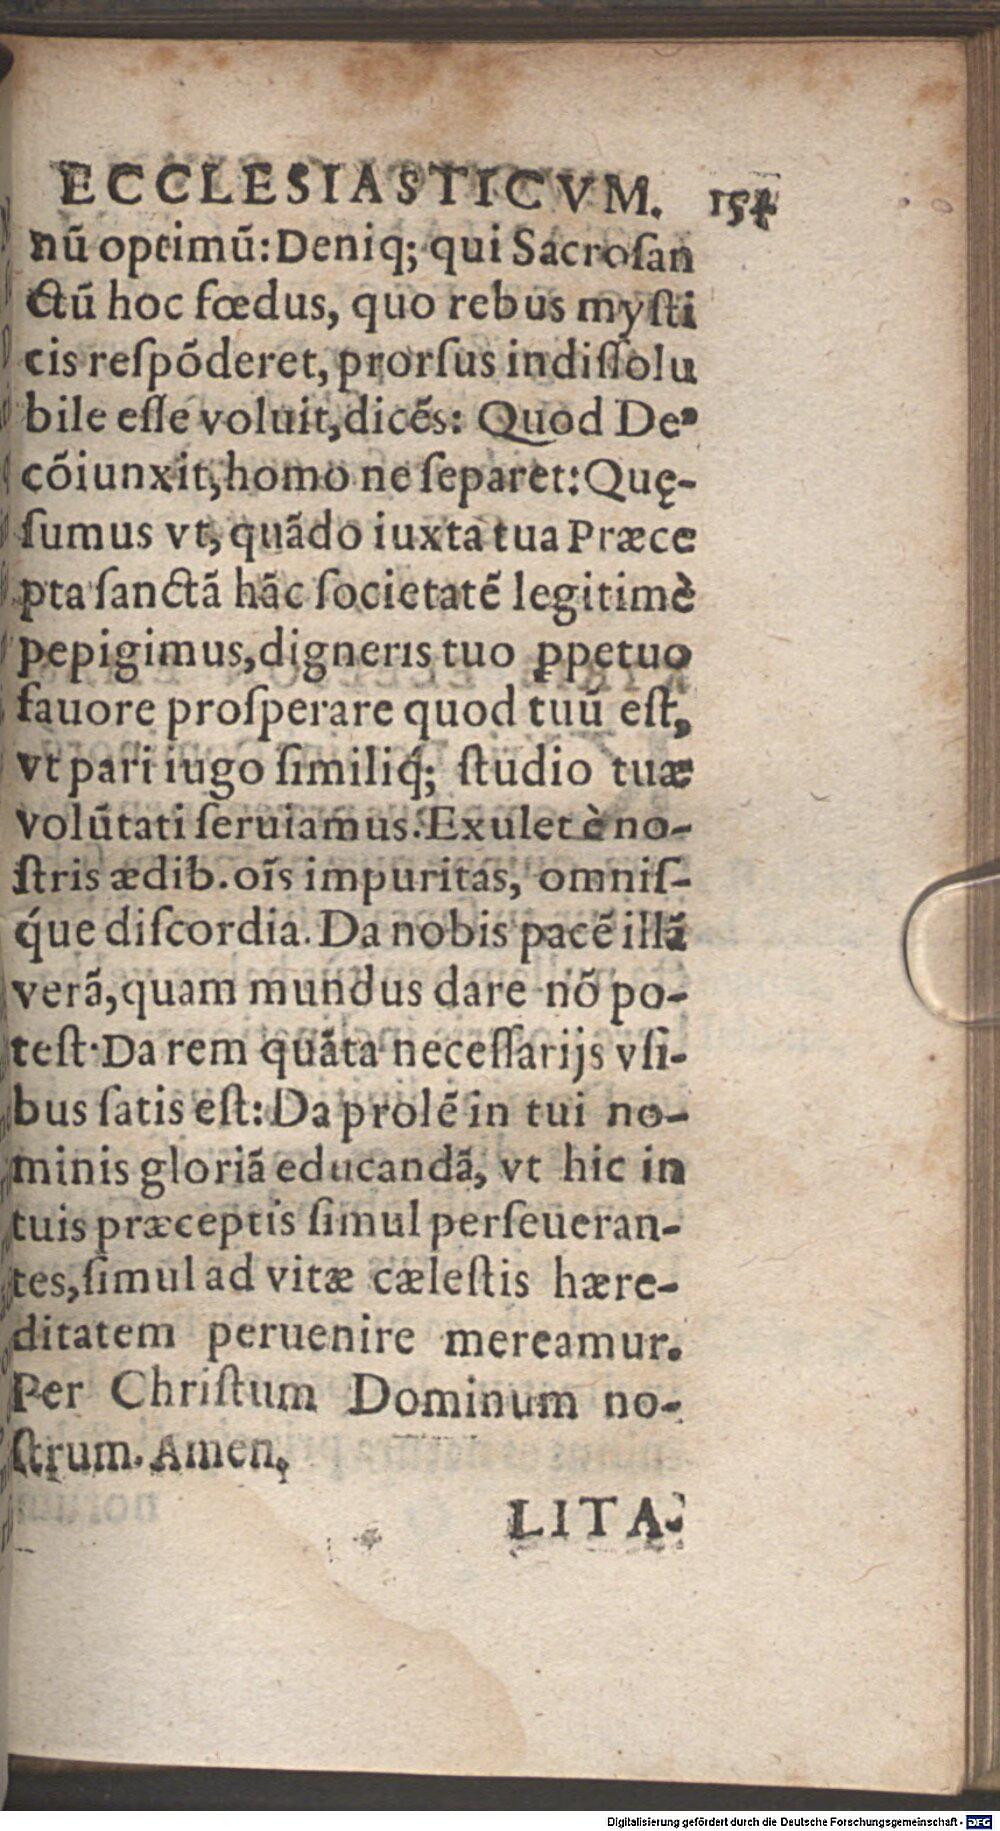 ECCLESIASTICVM. 154
nū optimū: Deniq; qui Sacroſan
ctū hoc fœdus, quo rebus myſti
cis reſpōderet, prorſus indiſſolu
bile eſſe voluit, dicēs: Quod Deꝰ
cōiunxit, homo ne ſeparet: Quę-
ſumus vt, quādo iuxta tua Præce
pta ſanctā hāc ſocietatē legitimè
pepigimus, digneris tuo ꝑpetuo
fauore proſperare quod tuū eſt,
vt pari iugo ſimiliq́; ſtudio tuæ
volūtati ſeruiamus. Exulet è no-
ſtris ædib. oīs impuritas, omniſ-
q́ue diſcordia. Da nobis pacē illā
verā, quam mundus dare nō po-
teſt. Da rem quāta neceſſarijs vſi-
bus ſatis eſt: Da prolē in tui no-
minis gloriā educandā, vt hic in
tuis præceptis ſimul perſeueran-
tes, ſimul ad vitæ cæleſtis hære-
ditatem peruenire mereamur.
Per Chriſtum Dominum no-
ſtrum. Amen.
LITA-
Digitalisierung gefördert durch die Deutsche Forschungsgemeinschaft - DFG